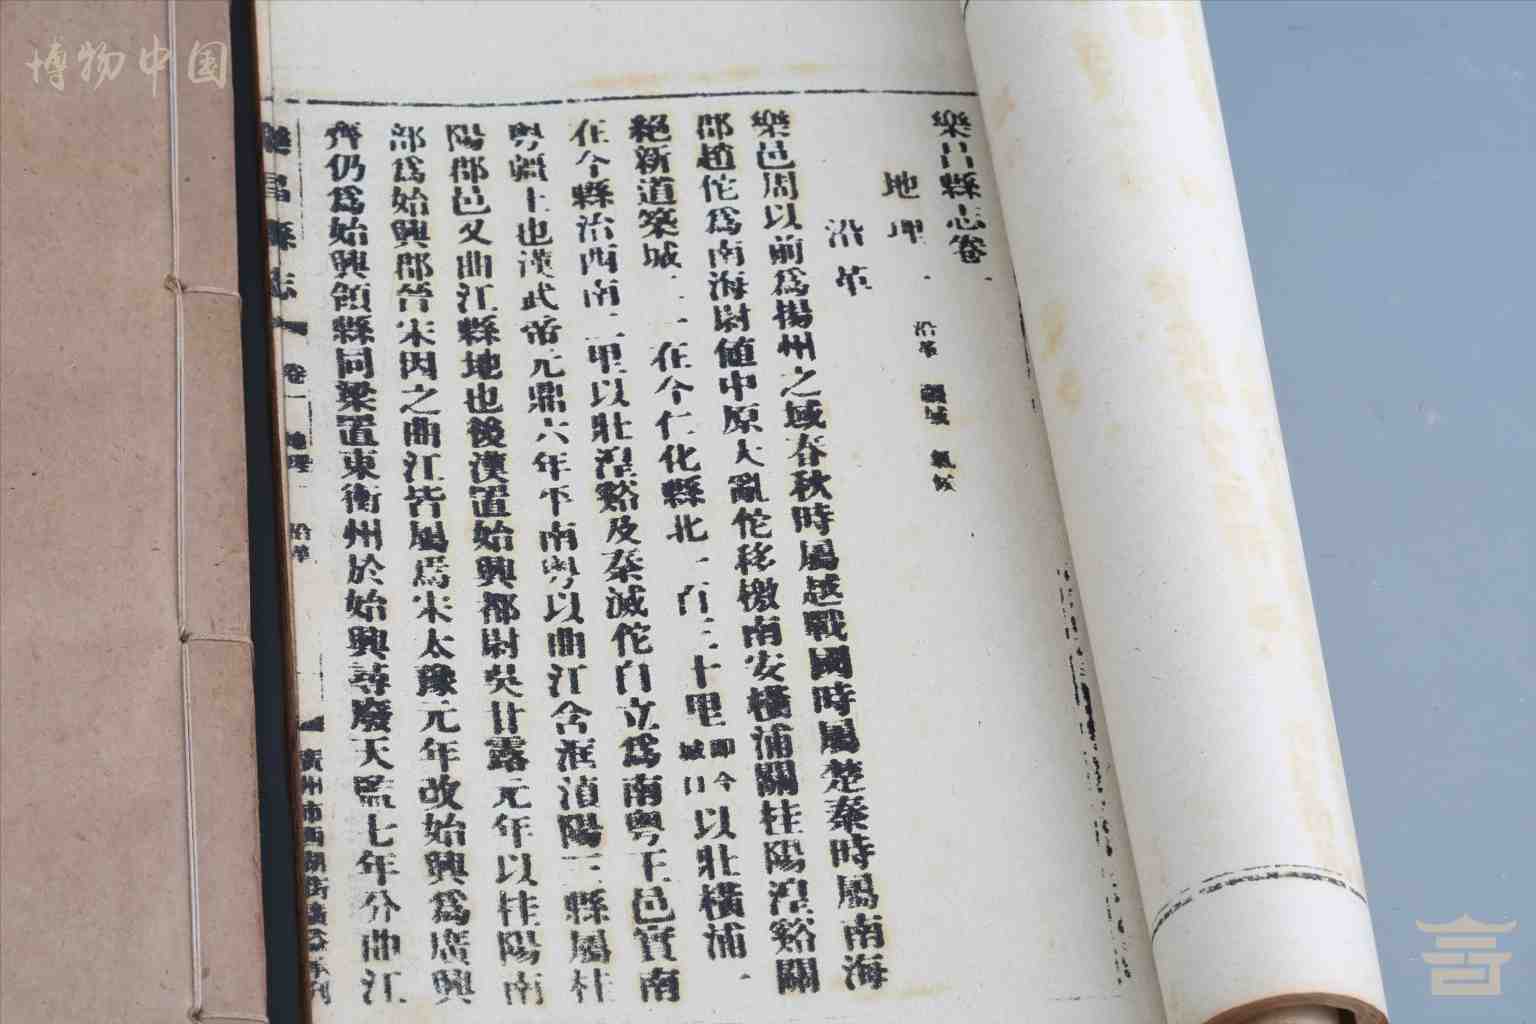 博物中国
樂昌縣志卷一
地理一 沿革 疆域 氣候
沿革
樂邑周以前爲揚州之域春秋時屬越戰國時屬楚秦時屬南海
郡趙佗爲南海尉値中原大亂佗移檄南安橫浦關桂陽湟谿關
絕新道築城二一在今仁化縣北一百三十里卽今城口以壯橫浦一
在今縣治西南二里以壯湟谿及秦滅佗自立爲南粤王邑實南
粤疆土也漢武帝元鼎六年平南粤以曲江含洭湞陽三縣屬桂
陽郡邑又曲江縣地也後漢置始興都尉吳甘露元年以桂陽南
部爲始興郡晉宋因之曲江皆屬焉宋太豫元年改始興爲廣興
齊仍爲始興領縣同梁置東衡州於始興尋廢天監七年分曲江
樂昌縣志 卷一 地理一 沿革 一 廣州市西湖街